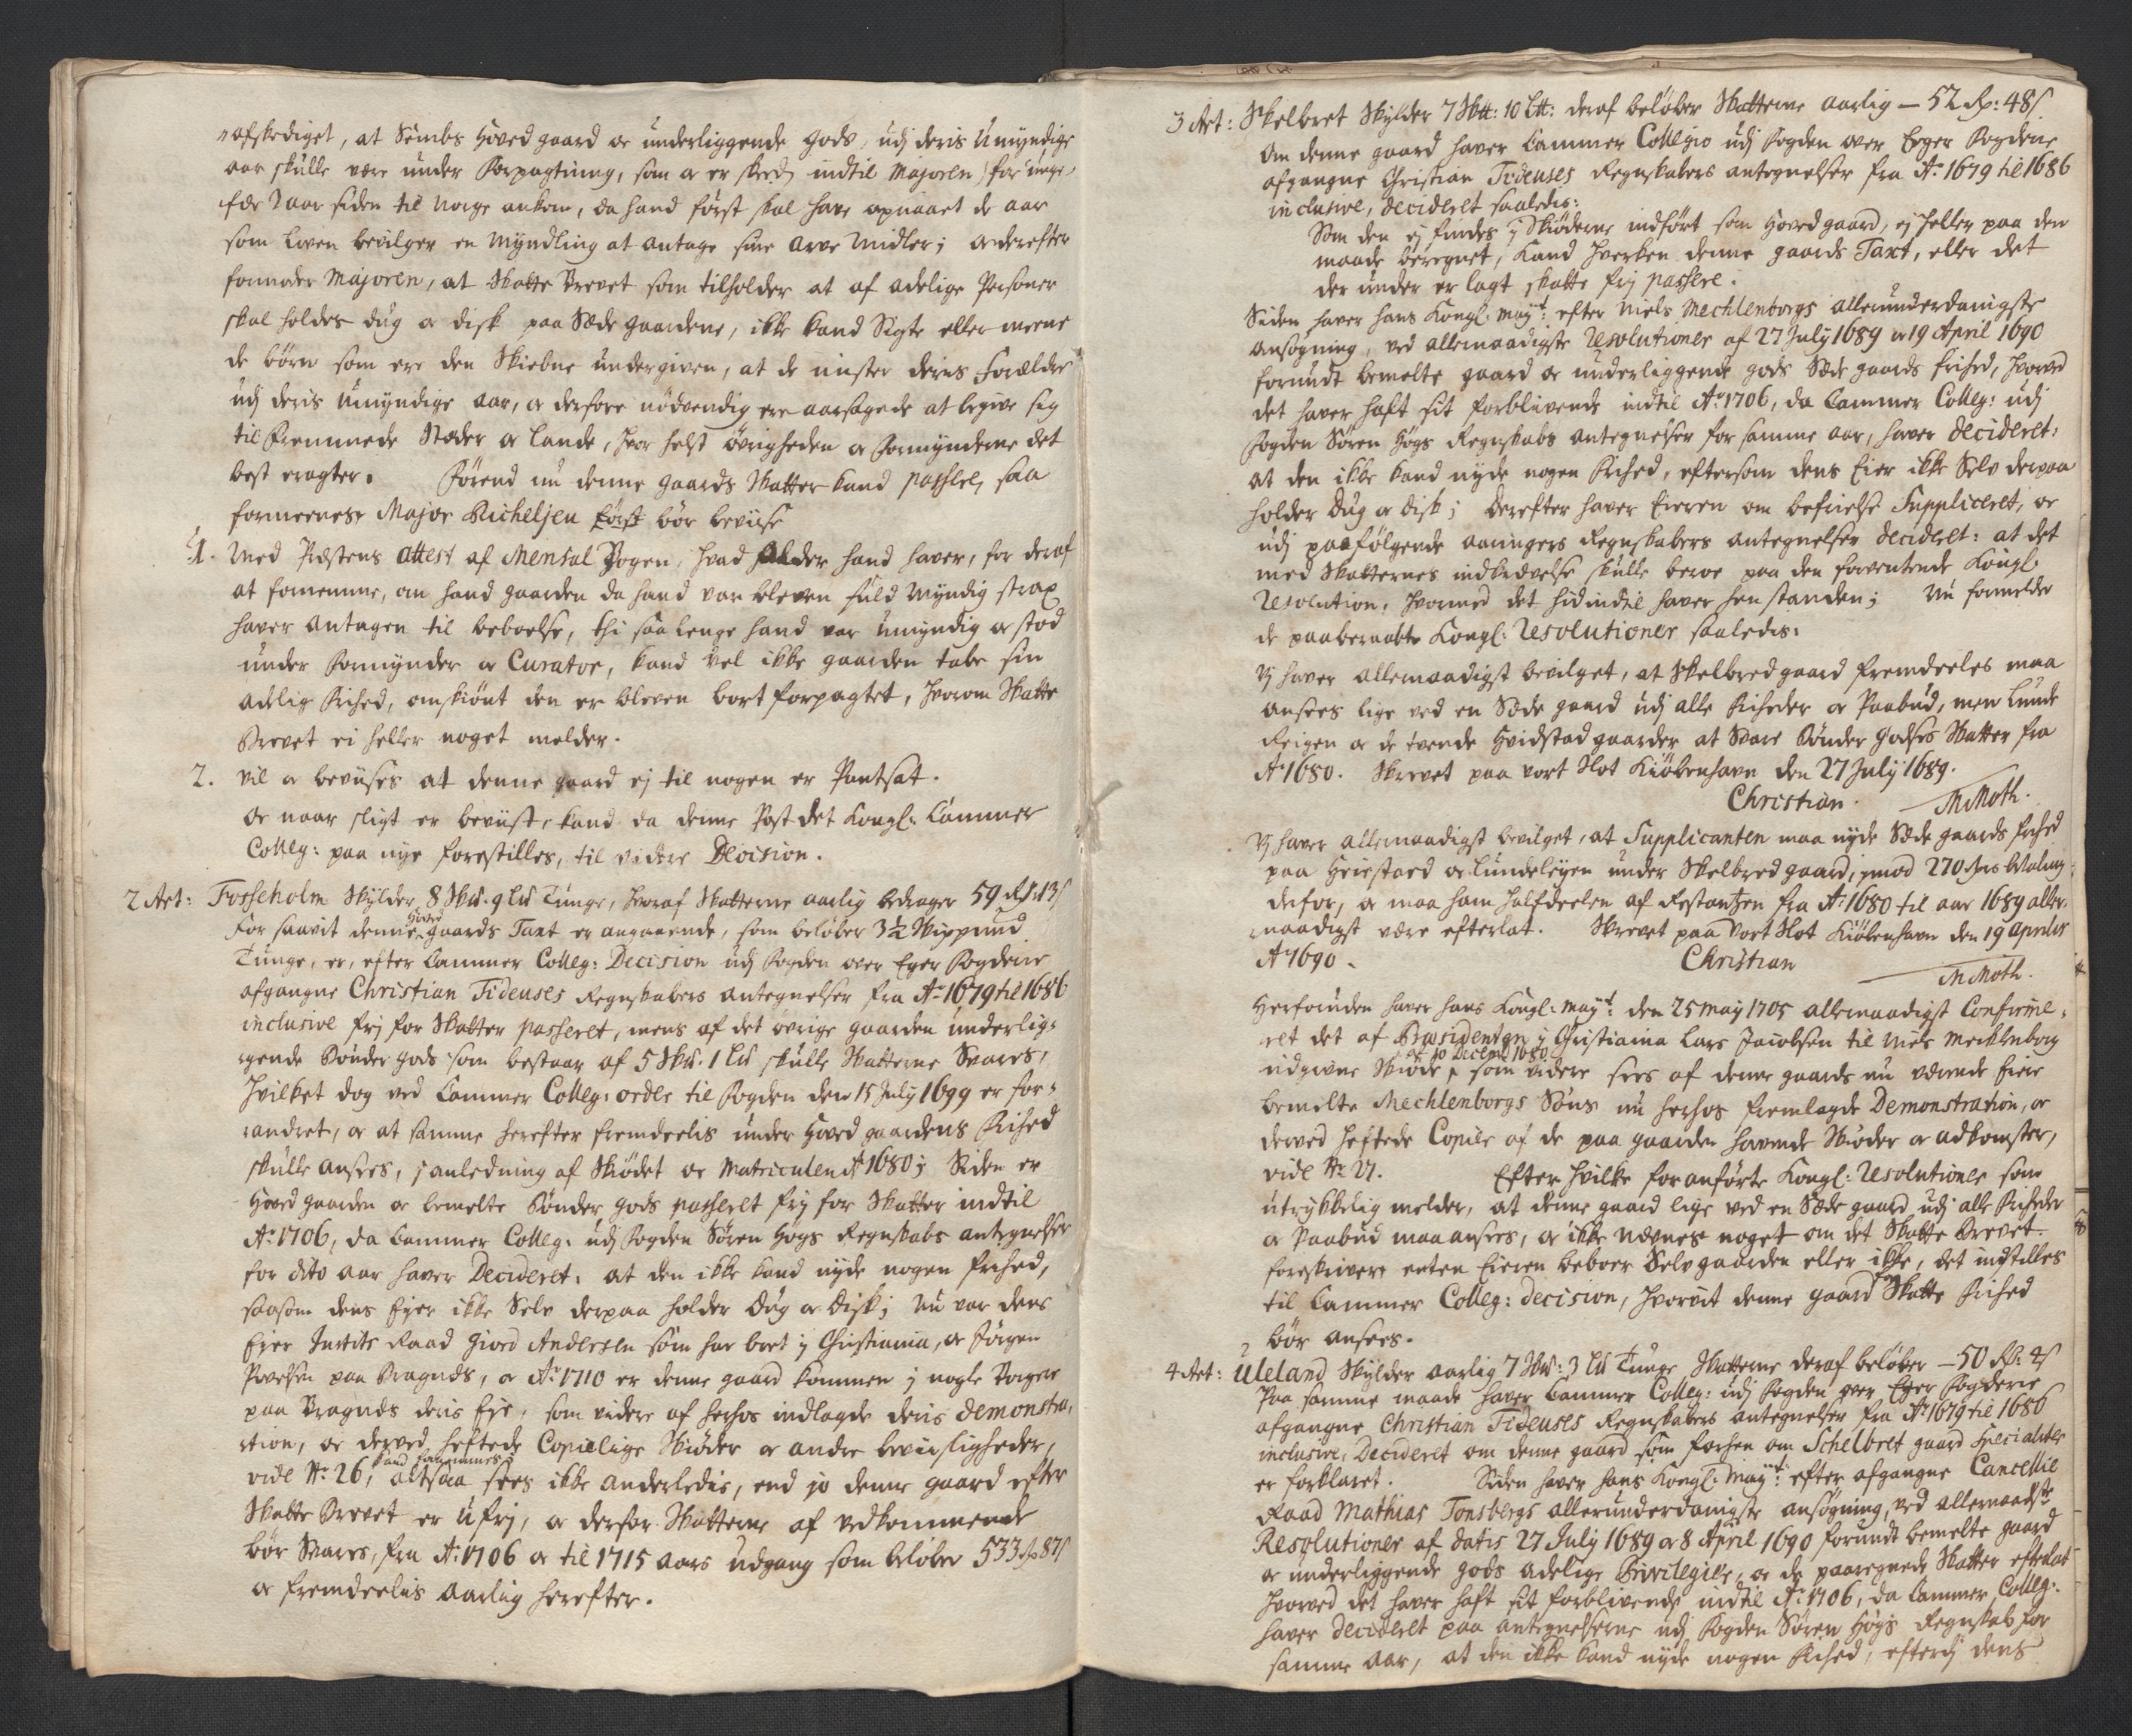 afskediget, at Sembs Hoved gaard oc underliggende gods, udj deris Umyndige
aar skulle være under Forpagtning, som oc er skeed, indtil Majoren for unge-
fær 2 aar siden til Norge ankom, da hand først skal have opnaaet de aar
som Loven bevilger en Myndling at antage sine Arve Midler; oc derefter
formoder Majoren, at Skatte Brevet som tilholder at af adelige Personer
skal holdes dug oc disk paa Sæde gaardene, ikke kand Sigte eller meene
de børn som ere den Skiebne undergiven, at de mister deris Forældre
udj deris umyndige aar, oc derfore nødvendig ere aarsagede at begive sig
til Fremmede Stæder oc Lande, hvor helst øvrigheden oc Formynderne det
best eragter. Førend nu denne gaards Skatter kand passere, saa
formeenes Major Richeljeu først bør beviise
1. Med Præstens attest af Mensal Bogen, hvad alder hand haver, for deraf
at fornemme, om hand gaarden da hand var bleven fuld Myndig strax
haver antagen til beboelse, thi saa lenge hand var umyndig oc stod
under Formynder oc Curator, kand vel ikke gaarden tabe sin
adelig Frihed, omskiønt den er bleven bort forpagtet, hvorom Skatte
Brevet ei heller noget melder.
2. Vil oc beviises at denne gaard ej til nogen er Pantsat.
Oc naar sligt er beviist, kand da denne Post det Kongl: Cammer
Colleg: paa nye forestilles, til videre Decision.
2 Art: Fosseholm Skylder 8 Sku. 9 Lu Tunge, hvoraf Skatterne aarlig bedrager 59 Rd 13 s
For saavit denne Hoved gaards Taxt er angaaende, som beløber 3½ Skippund
Tunge, er, efter Cammer Colleg: Decision udj Fogden over Eger Fogderie
afgangne Christian Tideuses Regnskabers antegnelser fra Ao 1679 til 1686
inclusive frj for Skatter passeret, mens af det øvrige gaarden underlig-
gende Bønder gods som bestaar af 5 Sku. 1 Lu skulle Skatterne Svares,
hvilket dog ved Cammer Colleg: ordre til Fogden den 15 July 1699 er for-
andret, oc at samme herefter fremdeelis under Hoved gaardens Frihed
skulle ansees, j anledning af Skiødet oc Matriculen Ao 1680; Siden er
Hoved gaarden oc bemelte Bønder gods passeret frj for Skatter indtil
Ao 1706, da Cammer Colleg: udj Fogden Søren Høgs Regnskabs antegnelser
for dito aar haver Decideret: at den ikke kand nyde nogen frihed,
saasom dens Ejer ikke Selv derpaa holder Dug oc Disk; Nu var dens
Ejer Justits Raad Giord Andersen som har boet j Christiania, oc Jørgen
Povelsen paa Bragnæs, oc Ao 1710 er denne gaard kommen j nogle Borgere
paa Bragnæs deris Eje, som videre af herhos indlagde deris demonstra-
tion, oc derved heftede Copielige Skiøder oc andre beviisligheder,
vide No 26, kand fornemmes, altsaa sees ikke anderledis, end jo denne gaard efter
Skatte Brevet er Ufrj, oc derfor Skatterne af vedkommende
bør Svares, fra Ao 1706 oc til 1715 aars udgang som beløber 533 Rd 87 s
oc fremdeelis aarlig herefter.
3 Art: Skelbret Skylder 7 Sktt: 10 Ltt: deraf beløber Skatterne aarlig — 52 Rd: 48 s
Om denne gaard haver Cammer Collegio udj Fogden over Eeger Fogderie
afgangne Christian Tideuses Regnskabers antegnelser fra Ao 1679 til 1686
inclusive, decideret saaledis:
Som den ej findes j Skiøderne indført som Hoved gaard, ej heller paa den
maade beregnet, kand hverken denne gaards Taxt, eller det
der under er lagt skatte frj passere.
Siden haver hans Kongl: Mayt: efter Niels Mechlenborgs allerunderdanigste
ansøgning, ved allernaadigste Resolutioner af 27 July 1689 oc 19 April 1690
forundt bemelte gaard oc underliggende gods Sæde gaards frihed, hvorved
det haver haft sit forblivende indtil Ao 1706, da Cammer Colleg: udj
Fogden Søren Høgs Regnskabs antegnelser for samme aar, haver decideret:
at den ikke kand nyde nogen Frihed, eftersom dens Eier ikke Selv derpaa
holder Dug oc disk; Derefter haver Eieren om befrielse Suppliceret, oc
udj paafølgende aaringers Regnskabers antegnelser decideret: at det
med Skatternes inddrevelse skulle beroe paa den forventende Kongl.
Resolution, hvormed det hidindtil haver henstanden; Nu formelder
de paaberaabte Kongl: Resolutioner saaledis:
Vj haver allernaadigst bevilget, at Skelbred gaard fremdeeles maa
ansees lige ved en Sæde gaard udj alle Friheder oc Paabud, men Lunde
Leigen oc de tvende Hvidstad gaarder at Svare Bønder Godses Skatter fra
Ao 1680. Skrevet paa vort Slot Kiøbenhavn den 27 July 1689.
Christian. M Moth.
Vj haver allernaadigst bevilget, at Supplicanten maa nyde Sæde gaards frihed
paa Heiestad oc Lundeleyen under Skelbred gaard, jmod 270 betaling
derfor, oc maa ham halfdeelen af Restantzen fra Ao 1680 til aar 1689 aller-
naadigst være efterlat. Skrevet paa Vort Slot Kiøbenhavn den 19 Aprilis
Ao 1690. Christian M Moth.
Herforuden haver hans Kongl: Mayt: den 25 May 1705 allernaadigst Confirme-
ret det af Præsidenten j Christiania Lars Jacobsen til Niels Mecklenborg
udgivne Skiøde af 10 Decemb 1680, som videre sees af denne gaards nu værende Eier
bemelte Mechlenborgs Søns nu herhos fremlagde Demonstration, oc
derved heftede Copier af de paa gaarden havende Skiøder oc adkomster,
vide No 27. Efter hvilke foranførte Kongl: Resolutioner som
utrykkelig melder, at denne gaard lige ved en Sæde gaard udj alle Friheder
oc Paabud maa ansees, oc ikke nævnes noget om det Skatte Brevet
foreskriver enten Eieren beboer Selv gaarden eller ikke, det indstilles
til Cammer Colleg: decision, hvorvit denne gaard for Skatte Frihed
bør ansees.
4 Art: Uleland Skylder aarlig 7 Sku: 3 Lu Tunge Skatterne deraf beløber — 50 Rd: 2 s
Paa samme maade haver Cammer Colleg: udj Fogden over Eger Fogderie
afgangne Christian Tideuses Regnskabers antegnelser fra Ao 1679 til 1686
inclusive, Decideret om denne gaard som forhen om Schelbret gaard specialiter
er forklaret. Siden haver hans Kongl: Mayt: efter afgangne Cancellie
Raad Mathias Tonsbergs allerunderdanigste ansøgning, ved allernaadste
Resolutioner af datis 27 July 1689 oc 8 April 1690 forundt bemelte gaard
oc underliggende gods adelige Privilegier, oc de paaregnede Skatter efterlat
hvorved det haver haft sit forblivende indtil Ao 1706, da Cammer Colleg:
haver decideret paa antegnelserne udj Fogden Søren Høgs Regnskab for
samme aar, at den ikke kand nyde nogen Frihed, efterdj dens